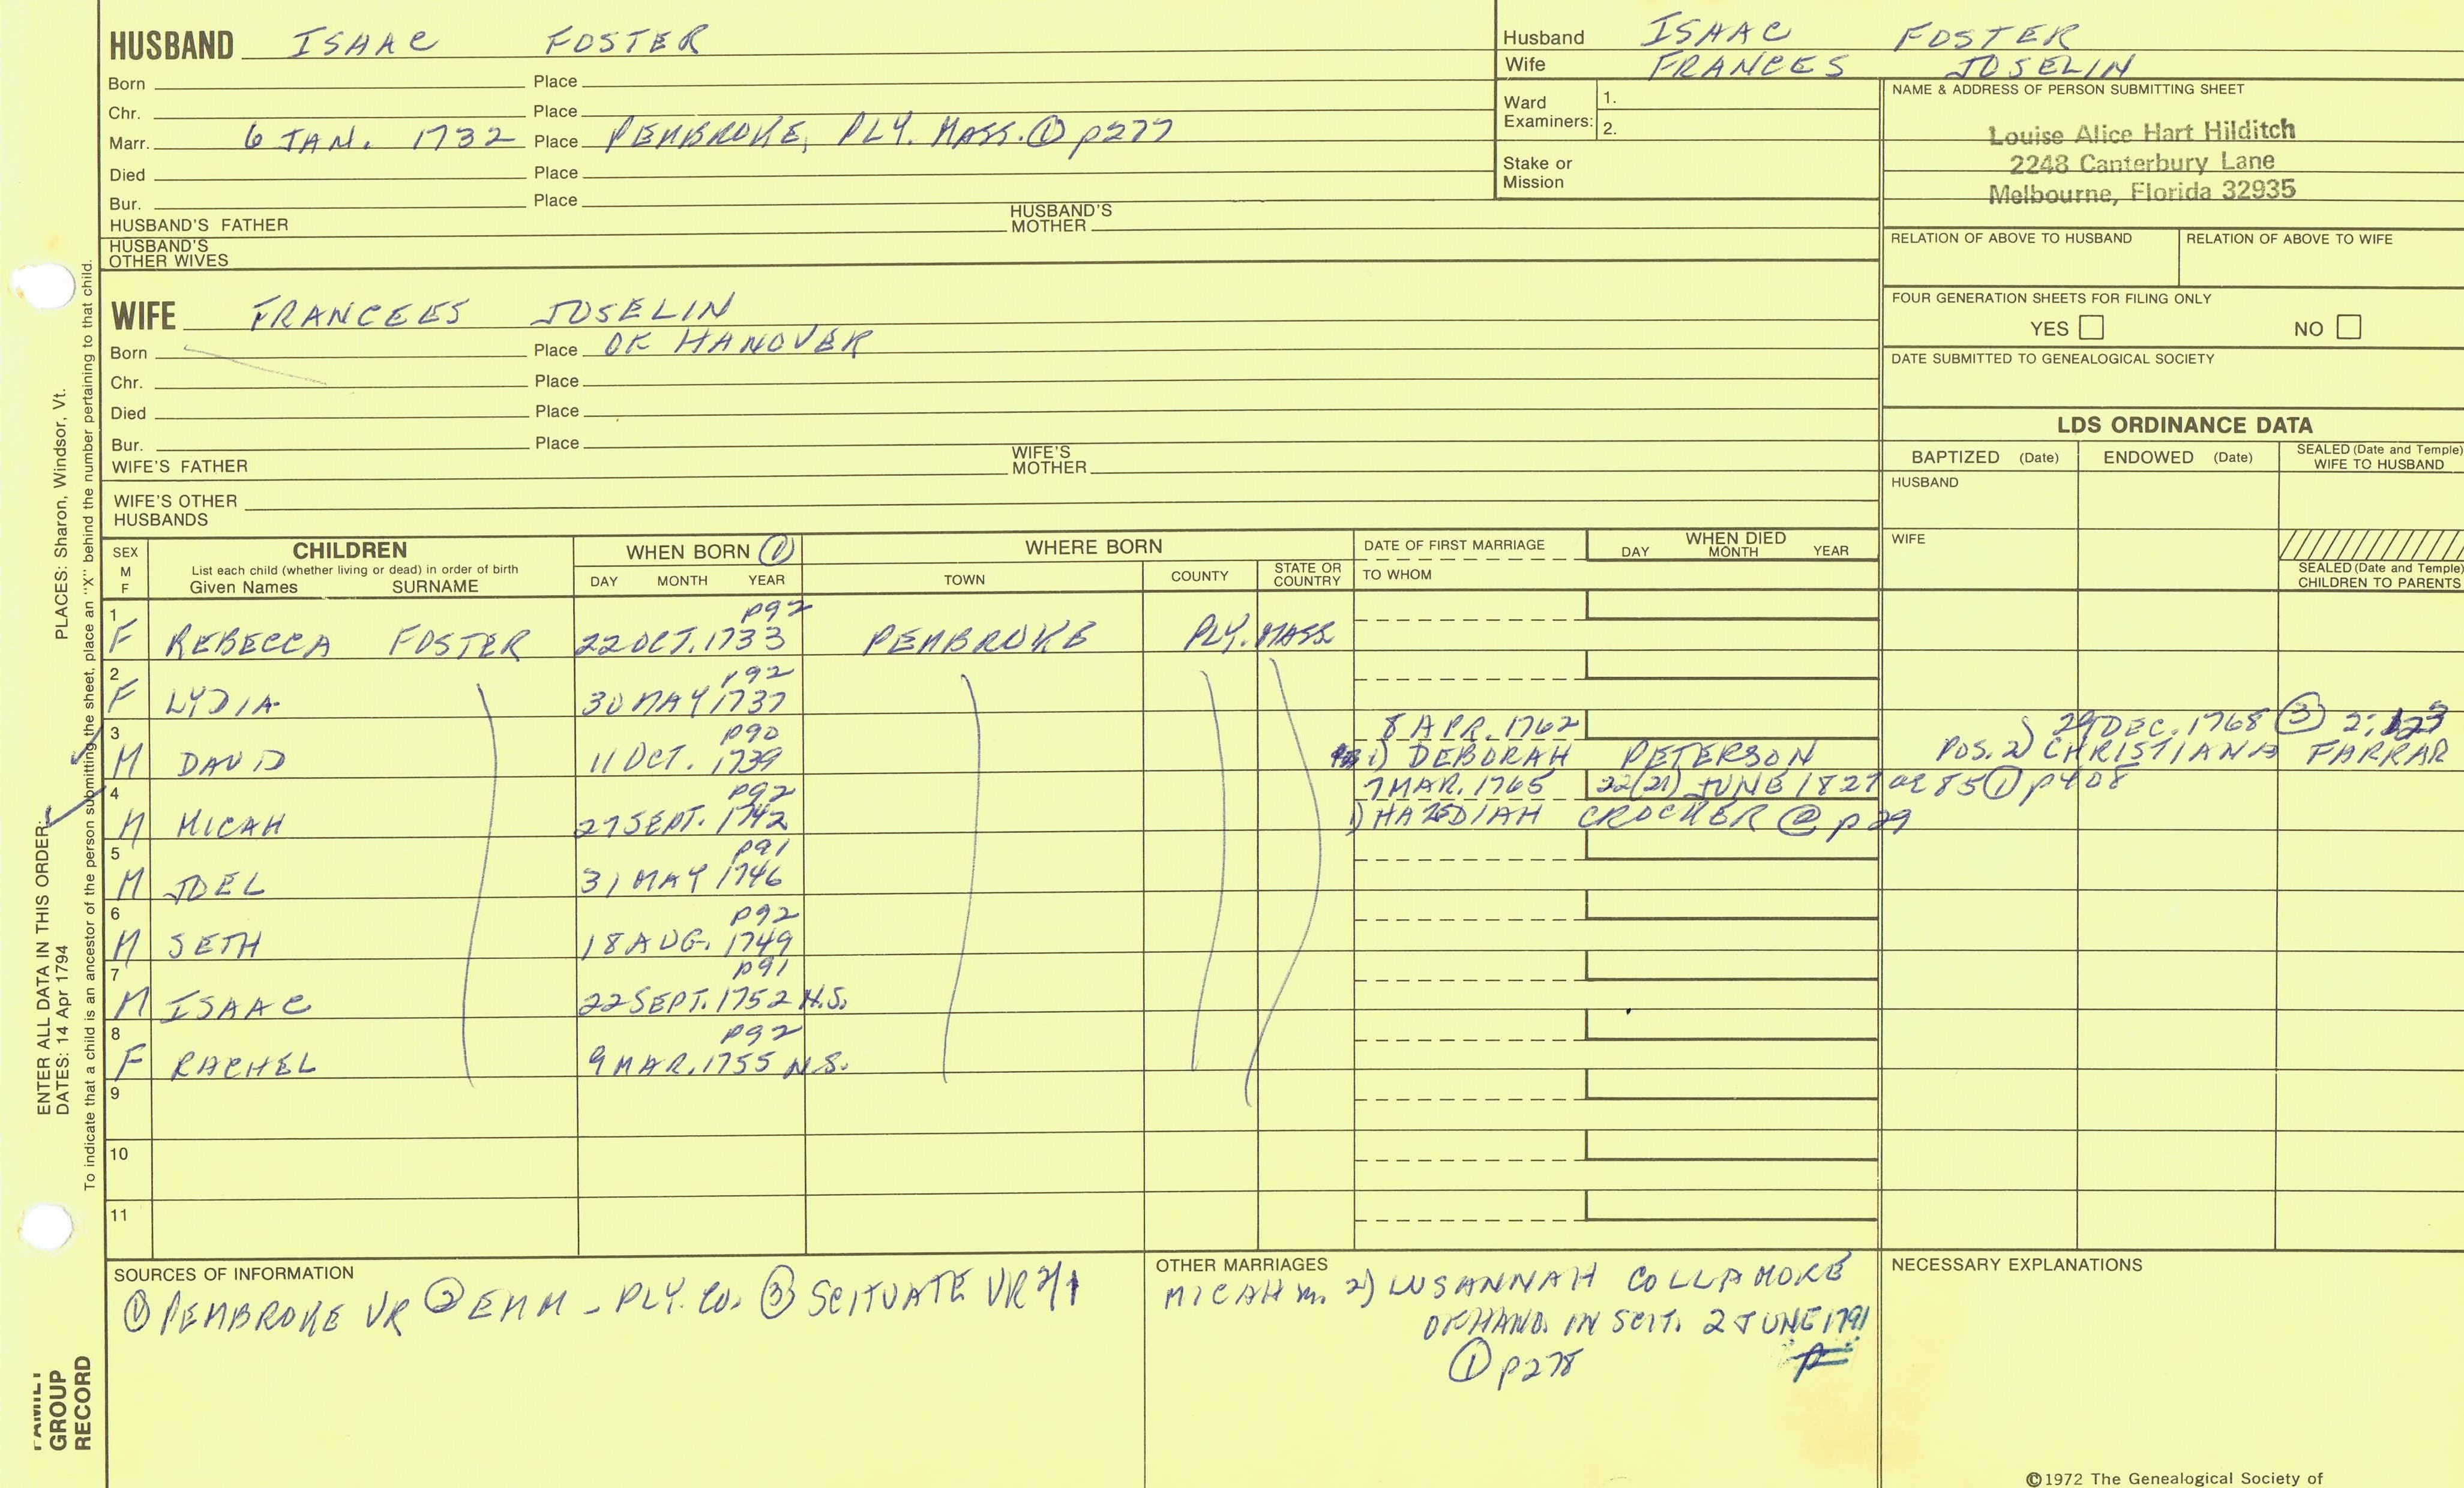 HUSBAND ISAAC FOSTER
Born Place
Chr. Place
Marr. 6 JAN. 1732 Place PEMBROKE, PLY. MASS. ① p277
Died Place
Bur. Place
HUSBAND'S FATHER HUSBAND'S MOTHER
HUSBAND'S OTHER WIVES
Husband ISAAC FOSTER
Wife FRANCES JOSELIN
Ward Examiners: 1.
2.
Stake or Mission
NAME & ADDRESS OF PERSON SUBMITTING SHEET
Louise Alice Hart Hilditch
2248 Canterbury Lane
Melbourne, Florida 32935
RELATION OF ABOVE TO HUSBAND RELATION OF ABOVE TO WIFE
FOUR GENERATION SHEETS FOR FILING ONLY
YES NO
DATE SUBMITTED TO GENEALOGICAL SOCIETY
WIFE FRANCEES JOSELIN
Born Place OF HANOVER
Chr. Place
Died Place
Bur. Place
WIFE'S FATHER WIFE'S MOTHER
WIFE'S OTHER HUSBANDS
LDS ORDINANCE DATA
BAPTIZED (Date) ENDOWED (Date) SEALED (Date and Temple) WIFE TO HUSBAND
HUSBAND
WIFE
SEALED (Date and Temple) CHILDREN TO PARENTS
SEX M F
CHILDREN
List each child (whether living or dead) in order of birth
Given Names SURNAME
WHEN BORN ①
DAY MONTH YEAR
WHERE BORN
TOWN COUNTY STATE OR COUNTRY
DATE OF FIRST MARRIAGE
TO WHOM
WHEN DIED
DAY MONTH YEAR
1 p92
F REBECCA FOSTER 22 OCT. 1733 PEMBROKE PLY. MASS
2 p92
F LYDIA 30 MAY 1737
3 p90 8 APR. 1762 29 DEC. 1768 ③
M DAVID 11 OCT. 1739 1) DEBORAH PETERSON POS. 2) CHRISTIANA FARRAR
4 p92 7 MAR. 1765 22(21) JUNE 1827 ae 85 ① p408
M MICAH 27 SEPT. 1742 1) CROCKER @ p 29
5 p91
M JOEL 31 MAY 1746
6 p92
M SETH 18 AUG. 1749
7 p91
M ISAAC 22 SEPT. 1752 N.S.
8 p92
F RACHEL 9 MAR. 1755 N.S.
9
10
11
SOURCES OF INFORMATION
① PEMBROKE VR ② EMM - PLY. CO. ③ SCITUATE VR
OTHER MARRIAGES
MICAH m. 2) LUSANNAH COLLAMORE
OF HAND. IN SCIT. 2 JUNE 1791
① p278
NECESSARY EXPLANATIONS
©1972 The Genealogical Society of
ENTER ALL DATA IN THIS ORDER:
DATES: 14 Apr 1794
PLACES: Sharon, Windsor, Vt.
To indicate that a child is an ancestor of the person submitting the sheet, place an "X" behind the number pertaining to that child.
FAMILY
GROUP
RECORD